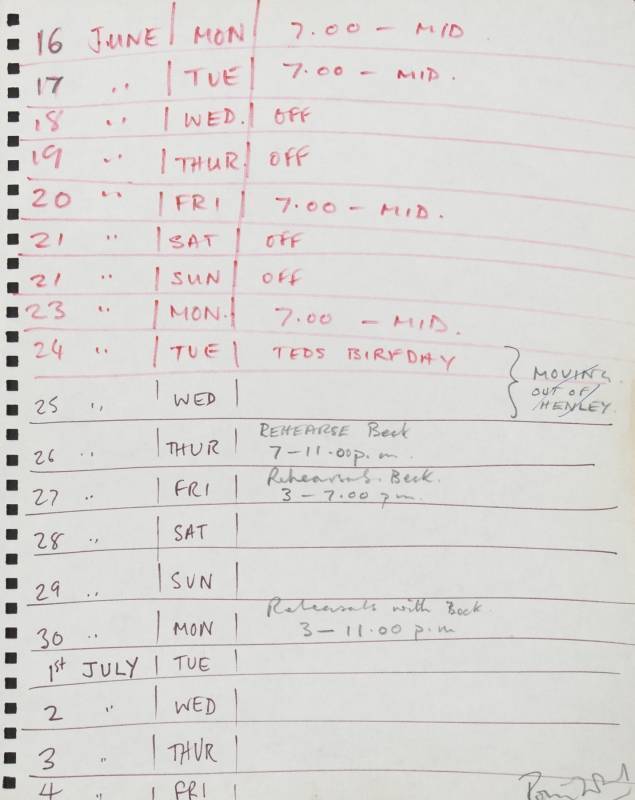 16 JUNE MON 7.00 - MID
17 " TUE 7.00 - MID.
18 " WED. OFF
19 " THUR OFF
20 " FRI 7.00 - MID.
21 " SAT OFF
21 " SUN OFF
23 " MON. 7.00 - MID.
24 " TUE TEDS BIRFDAY
MOVING
OUT OF
HENLEY
25 " WED
REHEARSE Beck
26 " THUR 7-11.00 p.m.
Rehearsals. Beck.
27 " FRI 3-7.00 pm.
28 " SAT
29 " SUN
Rehearsals with Beck
30 " MON 3-11.00 p.m
1st JULY TUE
2 " WED
3 " THUR
4 " FRI